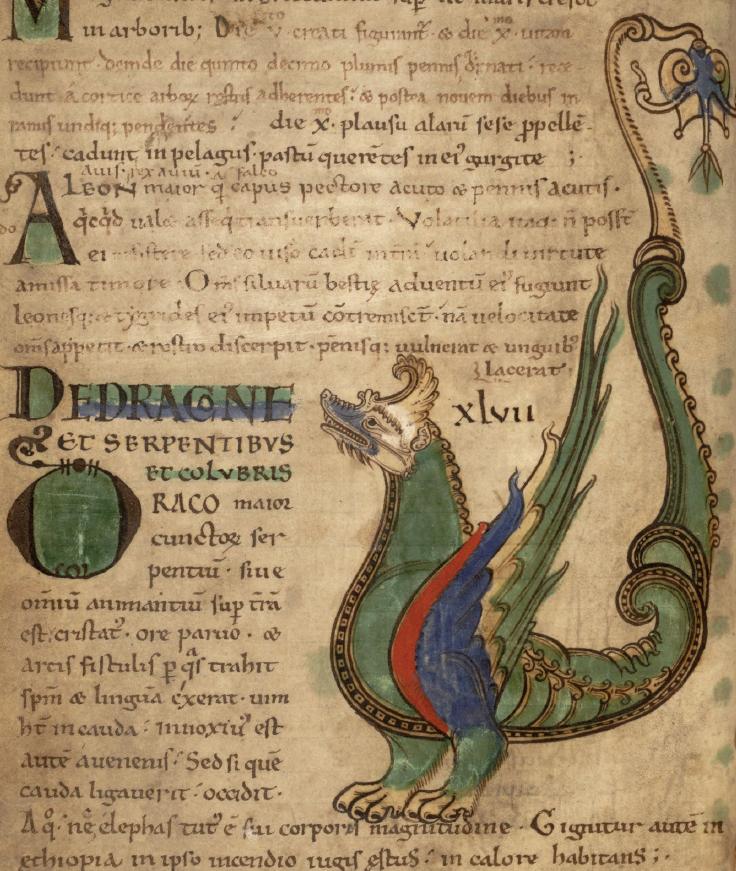 in arborib; Die v creati figurant⁊ & die x mo uitam
recipiunt · deinde die quinto decimo plumis pennis ornati · rece
dunt a cortice arbor rostris adherentes · & postea nouem diebus in
ramis undiq; pendentes · die x mo · plausu alarū sese ꝓpelle-
tes · cadunt in pelagus · pastū querētes in ei⁹ gurgite ;
auis · rex auiū · a falco
ALEON maior q̄ capus pectore acuto & pennis acutis ·
q̇cq̇d uale transuerberat · Volatilia n̄ possēt
ei sed eo uiso cadūt uolandi uirtute
amissa timore · Om̄s siluarū bestię aduentū ei⁹ fugiunt
leonesq; & tygrides ei⁹ impetū cōtremiscūt · nā uelocitate
om̄s appetit · & rostro discerpit · pēnisq; uulnerat & unguib⁹
lacerat
DE DRACONE xlvii
ET SERPENTIBVS
ET COLVBRIS
DRACO maior
cunctoꝝ ser
pentiū · siue
omniū animantiū sup̄ trā
est · cristat⁹ · ore paruo · &
artis fistulis ꝑ q̄s trahit
spm̄ & linguā exerat · uim
ht̄ in cauda · innoxi⁹ est
autē a uenenis · Sed si quē
cauda ligauerit · occidit ·
A q̊ · nē elephas tut⁹ ē sui corporis magnitudine · Gignitur autē in
ethiopia in ipso incendio iugis estus · in calore habitans ;